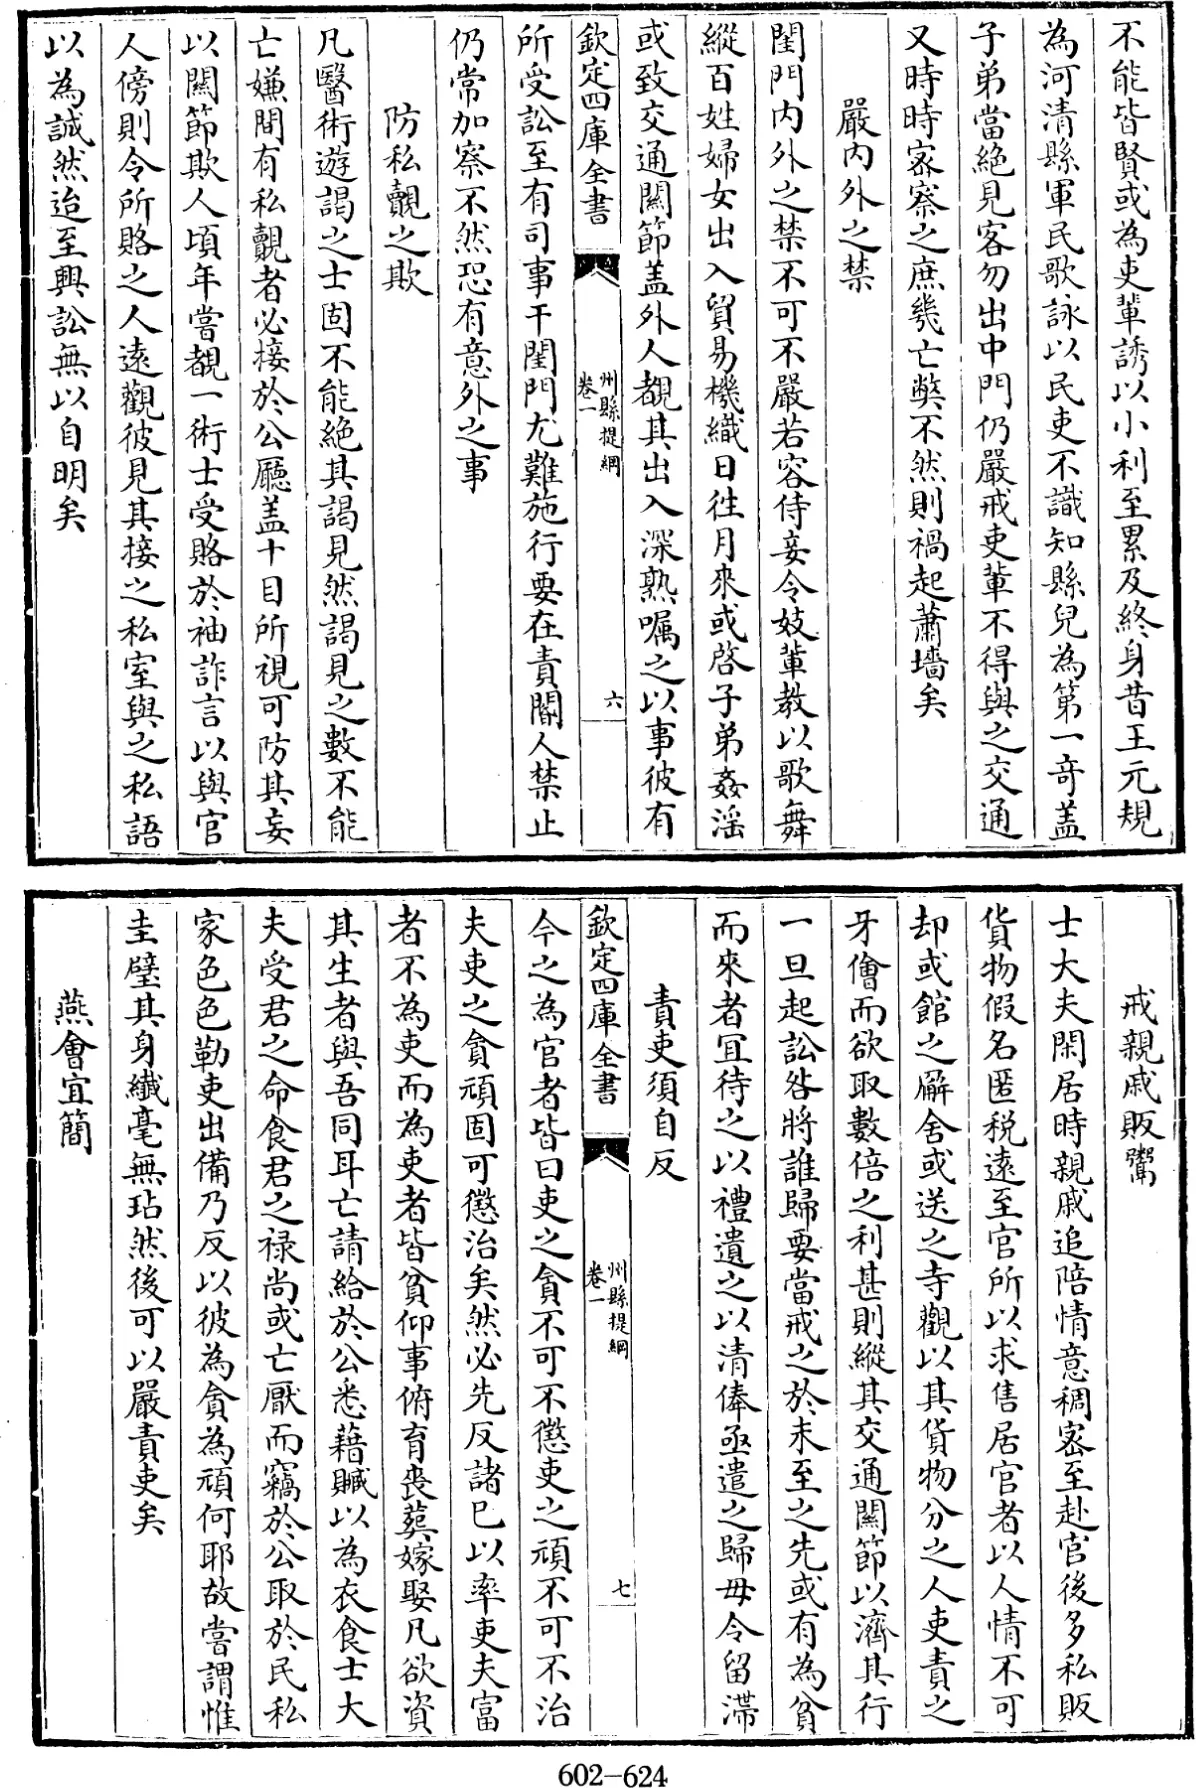 不能皆賢或為吏輩誘以小利至累及終身昔王元規
為河清縣軍民歌詠以民吏不識知縣兒為第一竒盖
子弟當絶見客勿出中門仍嚴戒吏輩不得與之交通
又時時宻察之庶幾亡弊不然則禍起蕭墻矣
嚴内外之禁
閨門内外之禁不可不嚴若容侍妾令妓輩教以歌舞
縱百姓婦女出入貿易機織日徃月來或啓子弟姦淫
或致交通闗節盖外人覩其出入深熟嘱之以事彼有
欽定四庫全書
州縣提綱
卷一
六
所受訟至有司事干閨門尤難施行要在責閽人禁止
仍常加察不然恐有意外之事
防私覿之欺
凡醫術遊謁之士固不能絶其謁見然謁見之數不能
亡嫌間有私覿者必接於公廳盖十目所視可防其妄
以闗節欺人頃年嘗覩一術士受賂於袖詐言以與官
人傍則令所賂之人遠觀彼見其接之私室與之私語
以為誠然迨至興訟無以自明矣
戒親戚販鬻
士大夫閑居時親戚追陪情意稠宻至赴官後多私販
貨物假名匿税遠至官所以求售居官者以人情不可
却或館之廨舍或送之寺觀以其貨物分之人吏責之
牙儈而欲取數倍之利甚則縱其交通闗節以濟其行
一旦起訟咎將誰歸要當戒之於未至之先或有為貧
而來者宜待之以禮遺之以清俸亟遣之歸毋令留滯
責吏須自反
欽定四庫全書
州縣提綱
卷一
七
今之為官者皆曰吏之貪不可不懲吏之頑不可不治
夫吏之貪頑固可懲治矣然必先反諸已以率吏夫富
者不為吏而為吏者皆貧仰事俯育喪葬嫁娶凡欲資
其生者與吾同耳亡請給於公悉藉贓以為衣食士大
夫受君之命食君之禄尚或亡厭而竊於公取於民私
家色色勒吏出備乃反以彼為貪為頑何耶故嘗謂惟
圭璧其身纎毫無玷然後可以嚴責吏矣
燕會宜簡
602-624